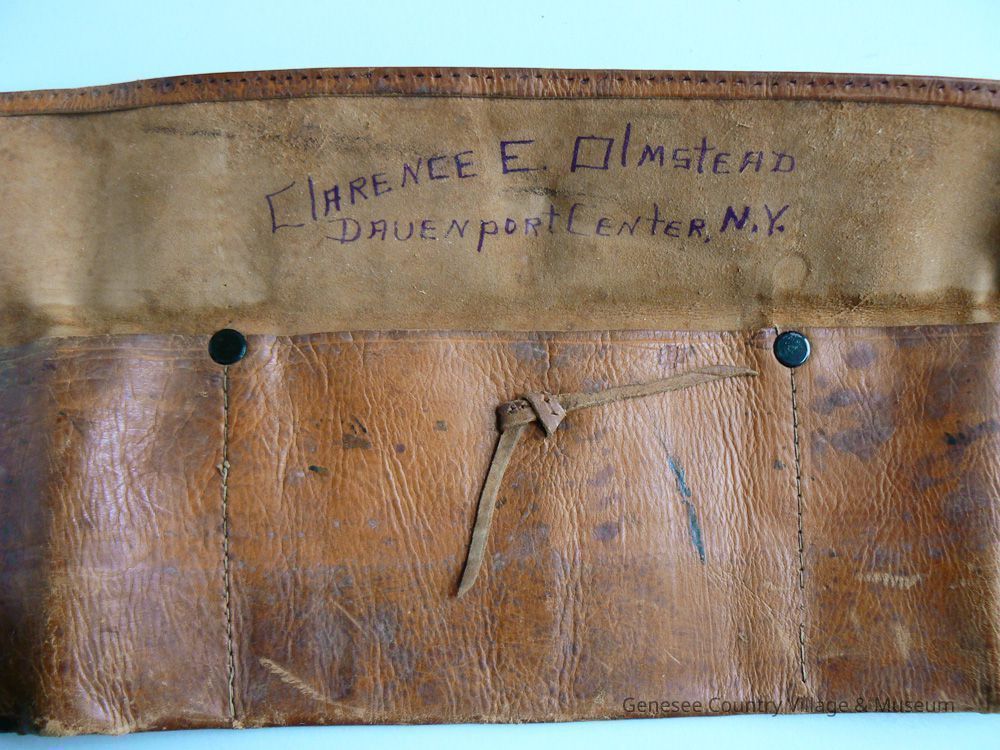 Clarence E. Olmstead
Davenport Center, N.Y.
Genesee Country Village & Museum